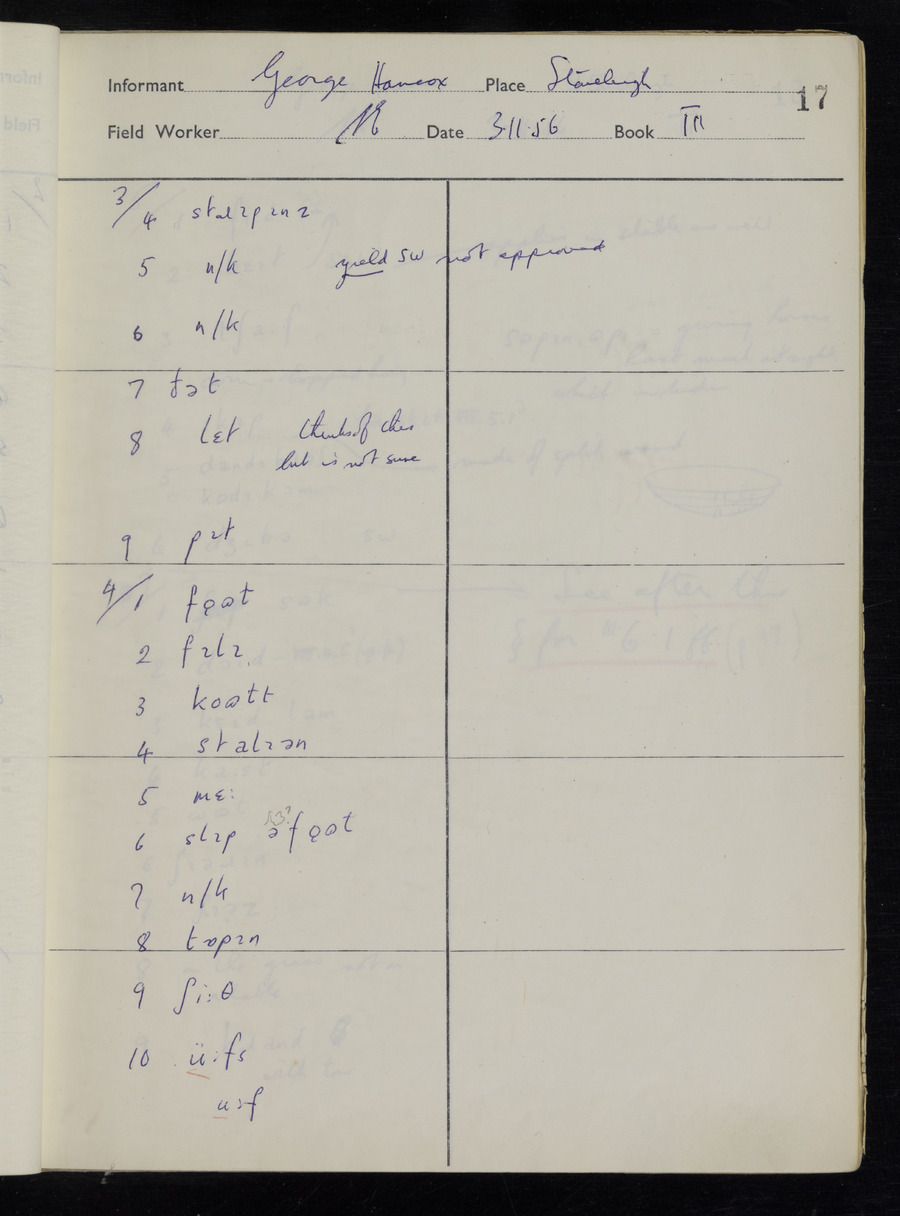 Informant George Hancox Place Stoneleigh 17
Field Worker Date 3.11.56 Book III
3/4 staɪpɪnz
5 n/k yield SW not approved
6 n/k
7 fat
8 lɛt thinks of this
but is not sure
9 pɪt
4/1 fɛət
2 fɪlɪ
3 koətt
4 stalɪən
5 mɛ:
6 slɪp ə fɛət
7 n/k
8 tɒpɪn
9 ʃi:θ
10 ü:fs
uːf